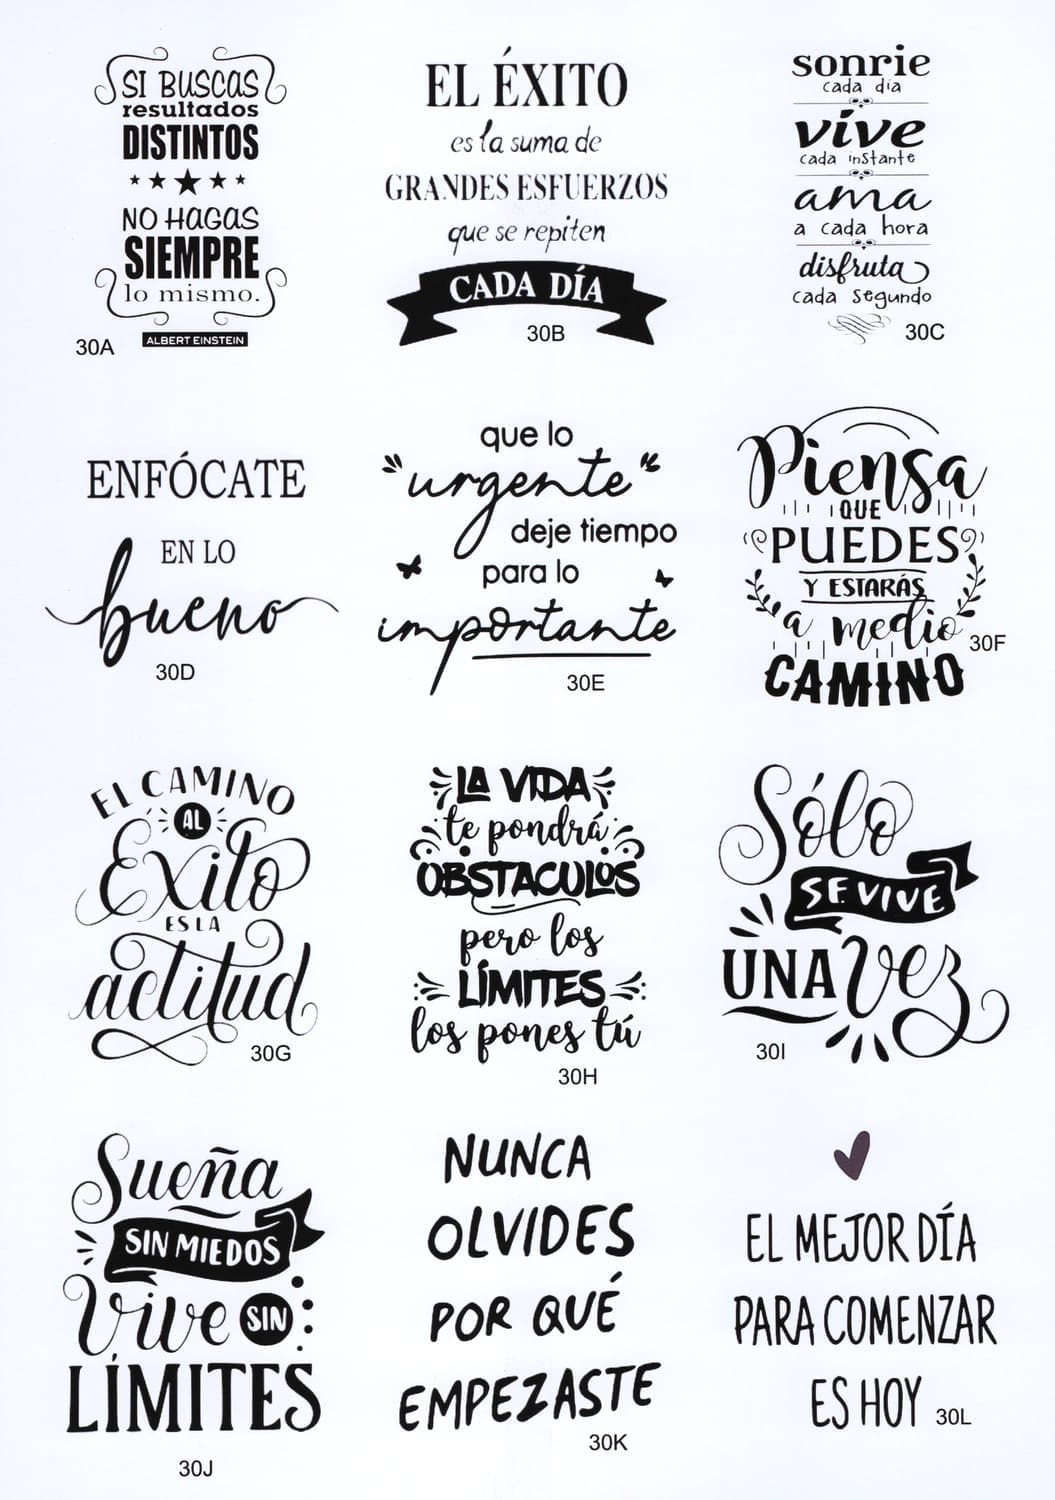 SI BUSCAS
resultados
DISTINTOS
NO HAGAS
SIEMPRE
lo mismo.
ALBERT EINSTEIN
30A
EL ÉXITO
es la suma de
GRANDES ESFUERZOS
que se repiten
CADA DÍA
30B
sonríe
cada día
vive
cada instante
ama
a cada hora
disfruta
cada segundo
30C
ENFÓCATE
EN LO
bueno
30D
que lo
"urgente"
deje tiempo
para lo
importante
30E
Piensa
QUE
PUEDES
Y ESTARÁS
a medio
CAMINO
30F
EL CAMINO
AL
Éxito
ES LA
actitud
30G
LA VIDA
te pondrá
OBSTACULOS
pero los
LÍMITES
los pones tú
30H
Sólo
SE VIVE
UNA Vez
30I
Sueña
SIN MIEDOS
Vive SIN
LÍMITES
30J
NUNCA
OLVIDES
POR QUÉ
EMPEZASTE
30K
EL MEJOR DÍA
PARA COMENZAR
ES HOY
30L